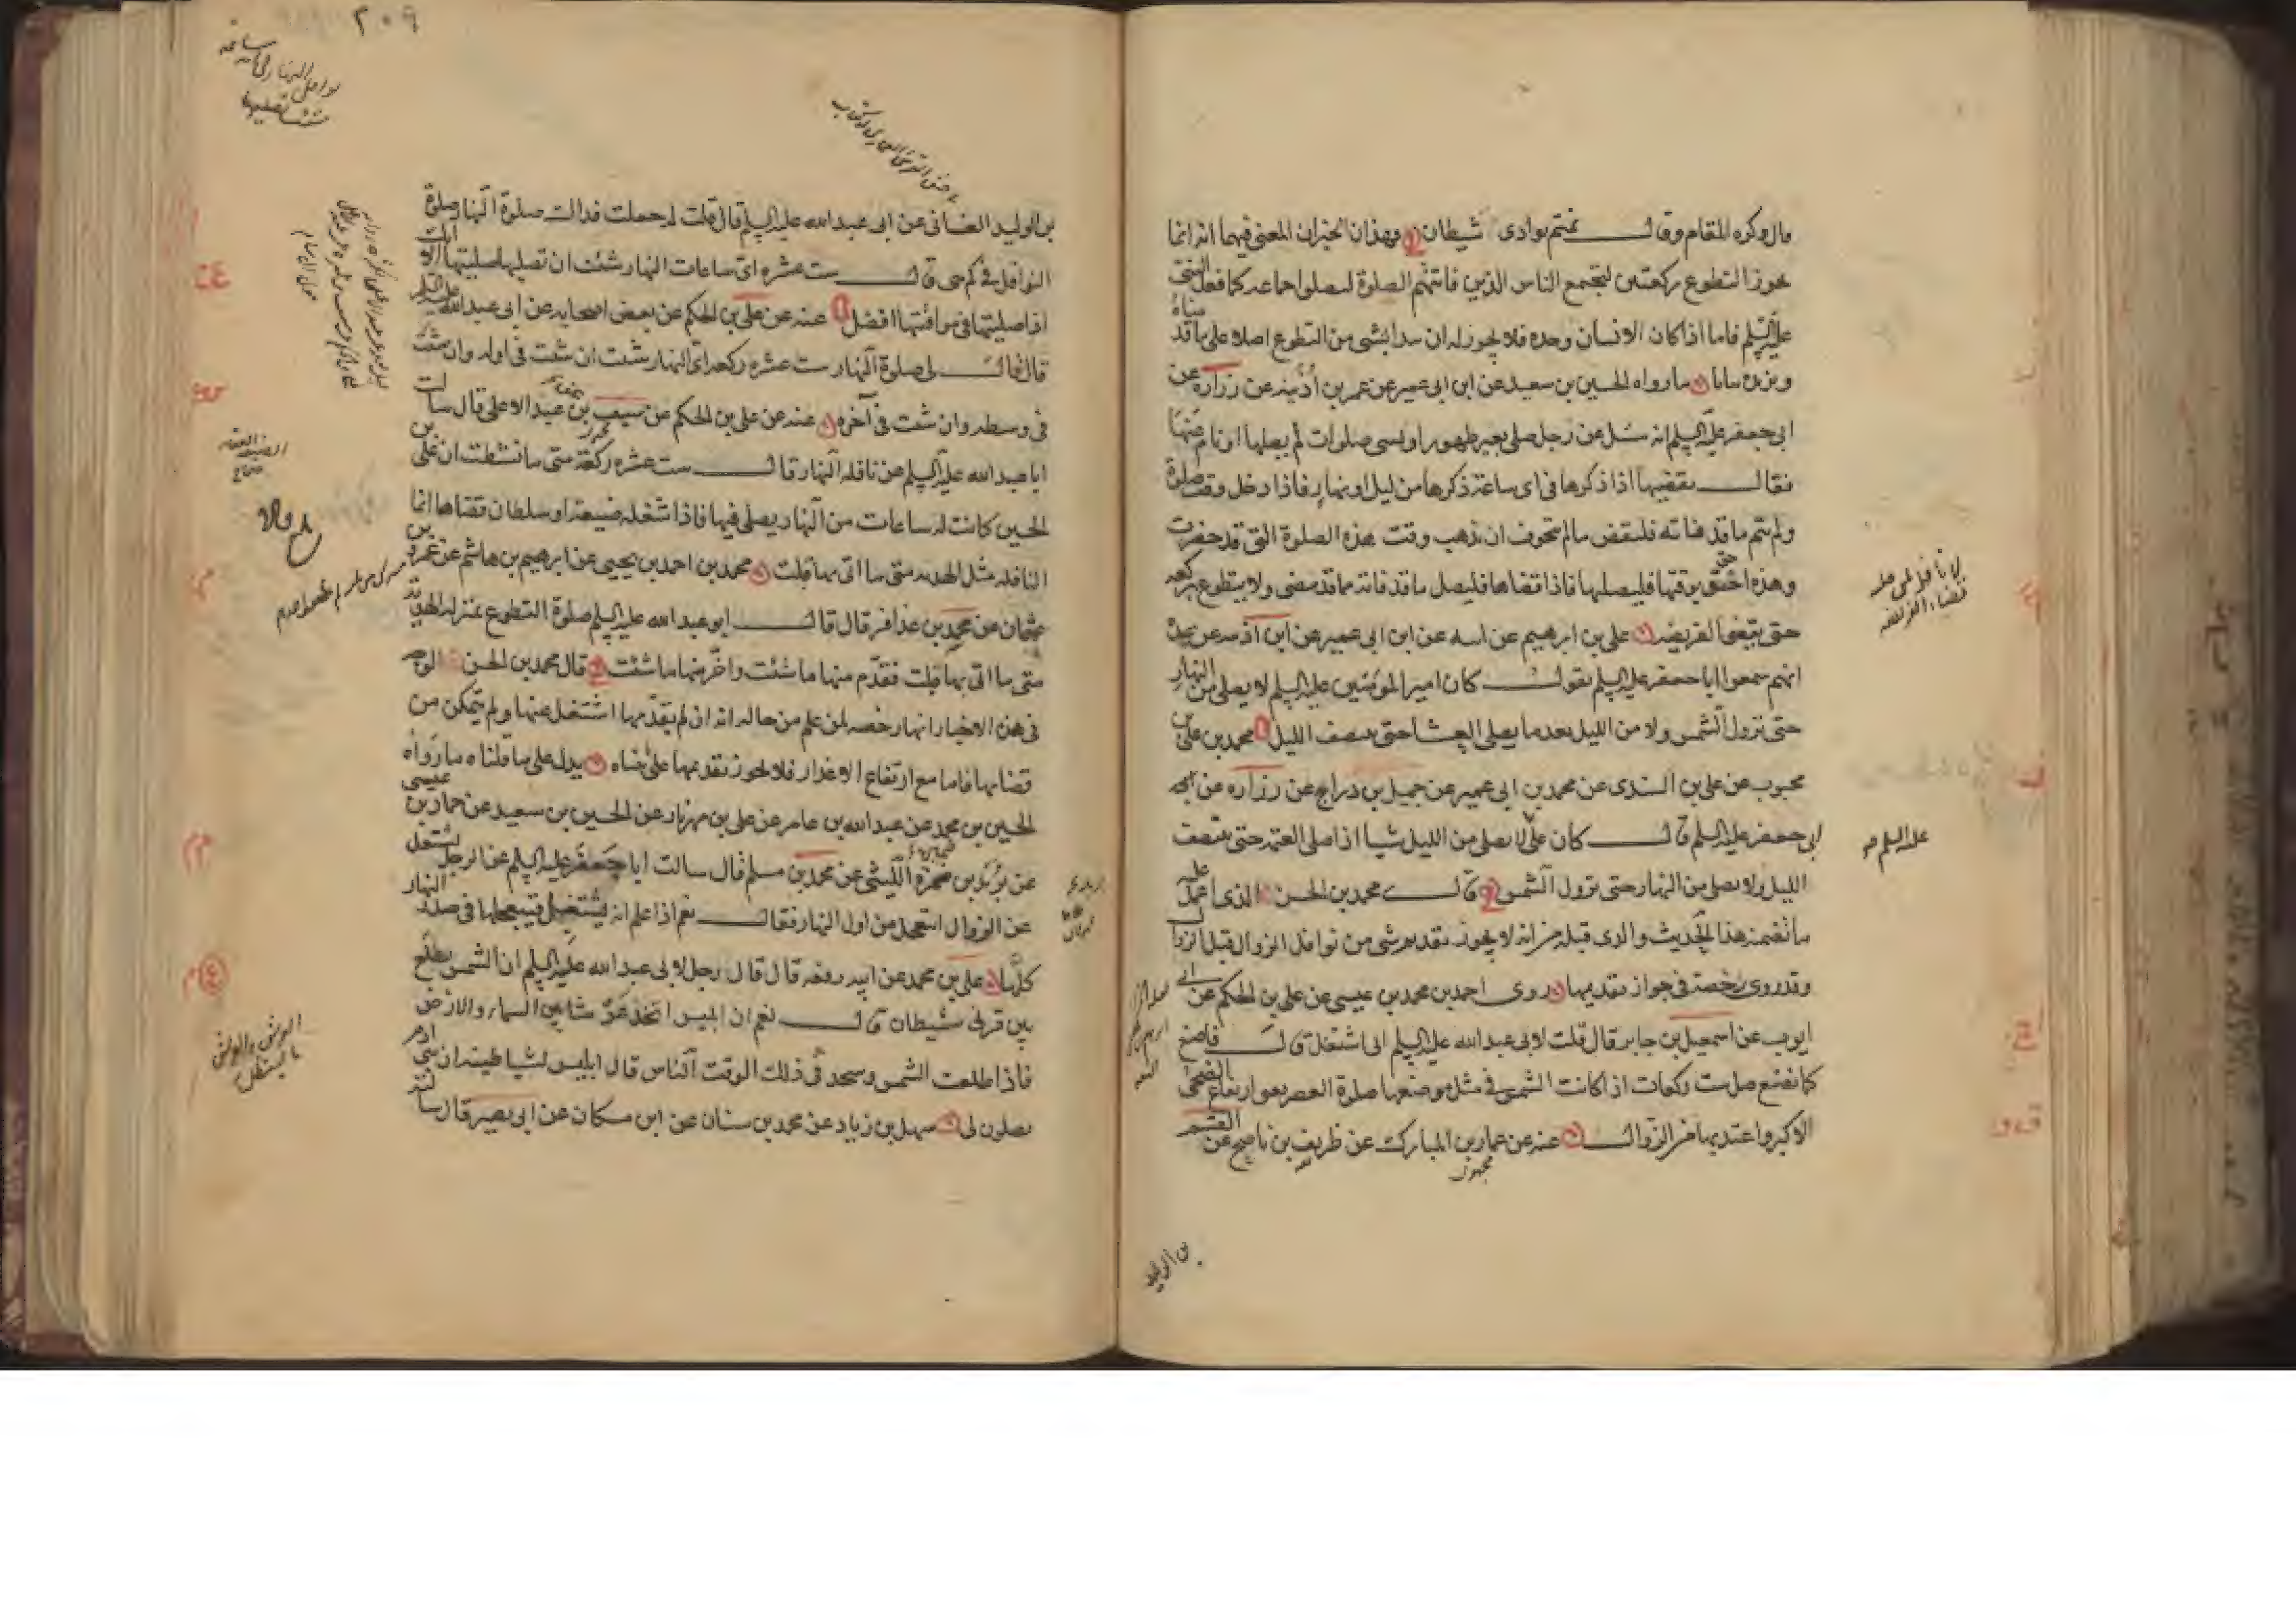 مال وكره المقام وقال نمتم بوادى شيطان فهذان الخبران المعنى فيهما انه انما
يجوز التطوع ركعتين ليجتمع الناس الذين فاتتهم الصلوة ليصلوا جماعه كما فعل النبى
عليه السلم فاما اذا كان الانسان وحده فلا يجوز له ان يبدا بشى من التطوع اصلا على ما قدمناه
ويزيده بيانا ما رواه الحسين بن سعيد عن ابن ابى عمير عن عمر بن اذينه عن زراره عن
ابى جعفر عليه السلم انه سئل عن رجل صلى بغير طهور او نسى صلوات لم يصلها او نام عنها
فقال يقضيها اذا ذكرها فى اى ساعة ذكرها من ليل او نهار فاذا دخل وقت صلوة
ولم يتم ما قد فاته فليقض ما لم يتخوف ان يذهب وقت هذه الصلوة التى قد حضرت
وهذه احق بوقتها فليصلها فاذا قضاها فليصل ما قد فاته مما قد مضى ولا يتطوع بركعه
حتى يقضى الفريضه على بن ابرهيم عن ابيه عن ابن ابى عمير عن ابن اذينه عن عدة
انهم سمعوا ابا جعفر عليه السلم يقول كان امير المؤمنين عليه السلم لا يصلى من النهار
حتى تزول الشمس ولا من الليل بعد ما يصلى العشا حتى ينتصف الليل محمد بن على بن
محبوب عن على بن السندى عن محمد بن ابى عمير عن جميل بن دراج عن زراره عن
ابى جعفر عليه السلم قال كان على لا يصلى من الليل شيا اذا صلى العتمة حتى ينتصف
الليل ولا يصلى من النهار حتى تزول الشمس قال محمد بن الحسن الذى اعمل عليه
ما تضمنه هذا الحديث والذى قبله من انه لا يجوز تقديم شى من نوافل الزوال قبل الزوال
وقد روى رخصة فى جواز تقديمها روى احمد بن محمد بن عيسى عن على بن الحكم عن ابى
ايوب عن اسمعيل بن جابر قال قلت لابى عبد الله عليه السلم انى اشتغل قال فاصنع
كما نصنع صل ست ركعات اذا كانت الشمس فى مثل موضعها صلوة العصر يعنى ارتفاع الضحى
الاكبر واعتد بها من الزوال عنه عن عمار بن المبارك عن ظريف بن ناصح عن القسم
مجهول
عليه السلم
بن الوليد
٢٠٩
بن الوليد الغسانى عن ابى عبد الله عليه السلم قال قلت له جعلت فداك صلوة النهار صلوة
النوافل فى كم هى قال ست عشره اى ساعات النهار شئت ان تصليها صليتها الا انك
اذا صليتها فى مواقيتها افضل عنه عن على بن الحكم عن بعض اصحابه عن ابى عبد الله عليه السلم
قال قال لى صلوة النهار ست عشره ركعه اى النهار شئت ان شئت فى اوله وان شئت
فى وسطه وان شئت فى آخره عنه عن على بن الحكم عن سيف بن عبد الاعلى قال سالت
ابا عبد الله عليه السلم عن نافله النهار قال ست عشره ركعة متى ما نشطت ان على بن
الحسين كانت له ساعات من النهار يصلى فيها فاذا شغله ضيعة او سلطان قضاها انما
النافله مثل الهديه متى ما اتى بها قبلت محمد بن احمد بن يحيى عن ابرهيم بن هاشم عن عمرو بن
عثمان عن محمد بن عذافر قال قال ابو عبد الله عليه السلم صلوة التطوع بمنزله الهديه
متى ما اتى بها قبلت فقدم منها ما شئت واخر منها ما شئت قال محمد بن الحسن الوجه
فى هذه الاخبار انها رخصه لمن علم من حاله انه ان لم يقدمها اشتغل عنها ولم يتمكن من
قضائها فاما مع ارتفاع الاعذار فلا يجوز تقديمها على بيناه يدل على ما قلناه ما رواه
الحسين بن محمد عن عبد الله بن عامر عن على بن مهزيار عن الحسين بن سعيد عن حماد بن عيسى
عن بريد بن ضمره الليثى عن محمد بن مسلم قال سالت ابا جعفر عليه السلم عن الرجل يشتغل
عن الزوال ايتعجل من اول النهار فقال نعم اذا علم انه يشتغل فيتعجلها فى صدر النهار
كلها على بن محمد عن ابيه رفعه قال قال رجل لابى عبد الله عليه السلم ان الشمس يطلع
بين قرنى شيطان قال نعم ان ابليس اتخذ عرشا بين السماء والارض
فاذا طلعت الشمس وسجد فى ذلك الوقت الناس قال ابليس لشياطينه ان بنى ادم
يصلون لى سهل بن زياد عن محمد بن سنان عن ابن مسكان عن ابى بصير قال